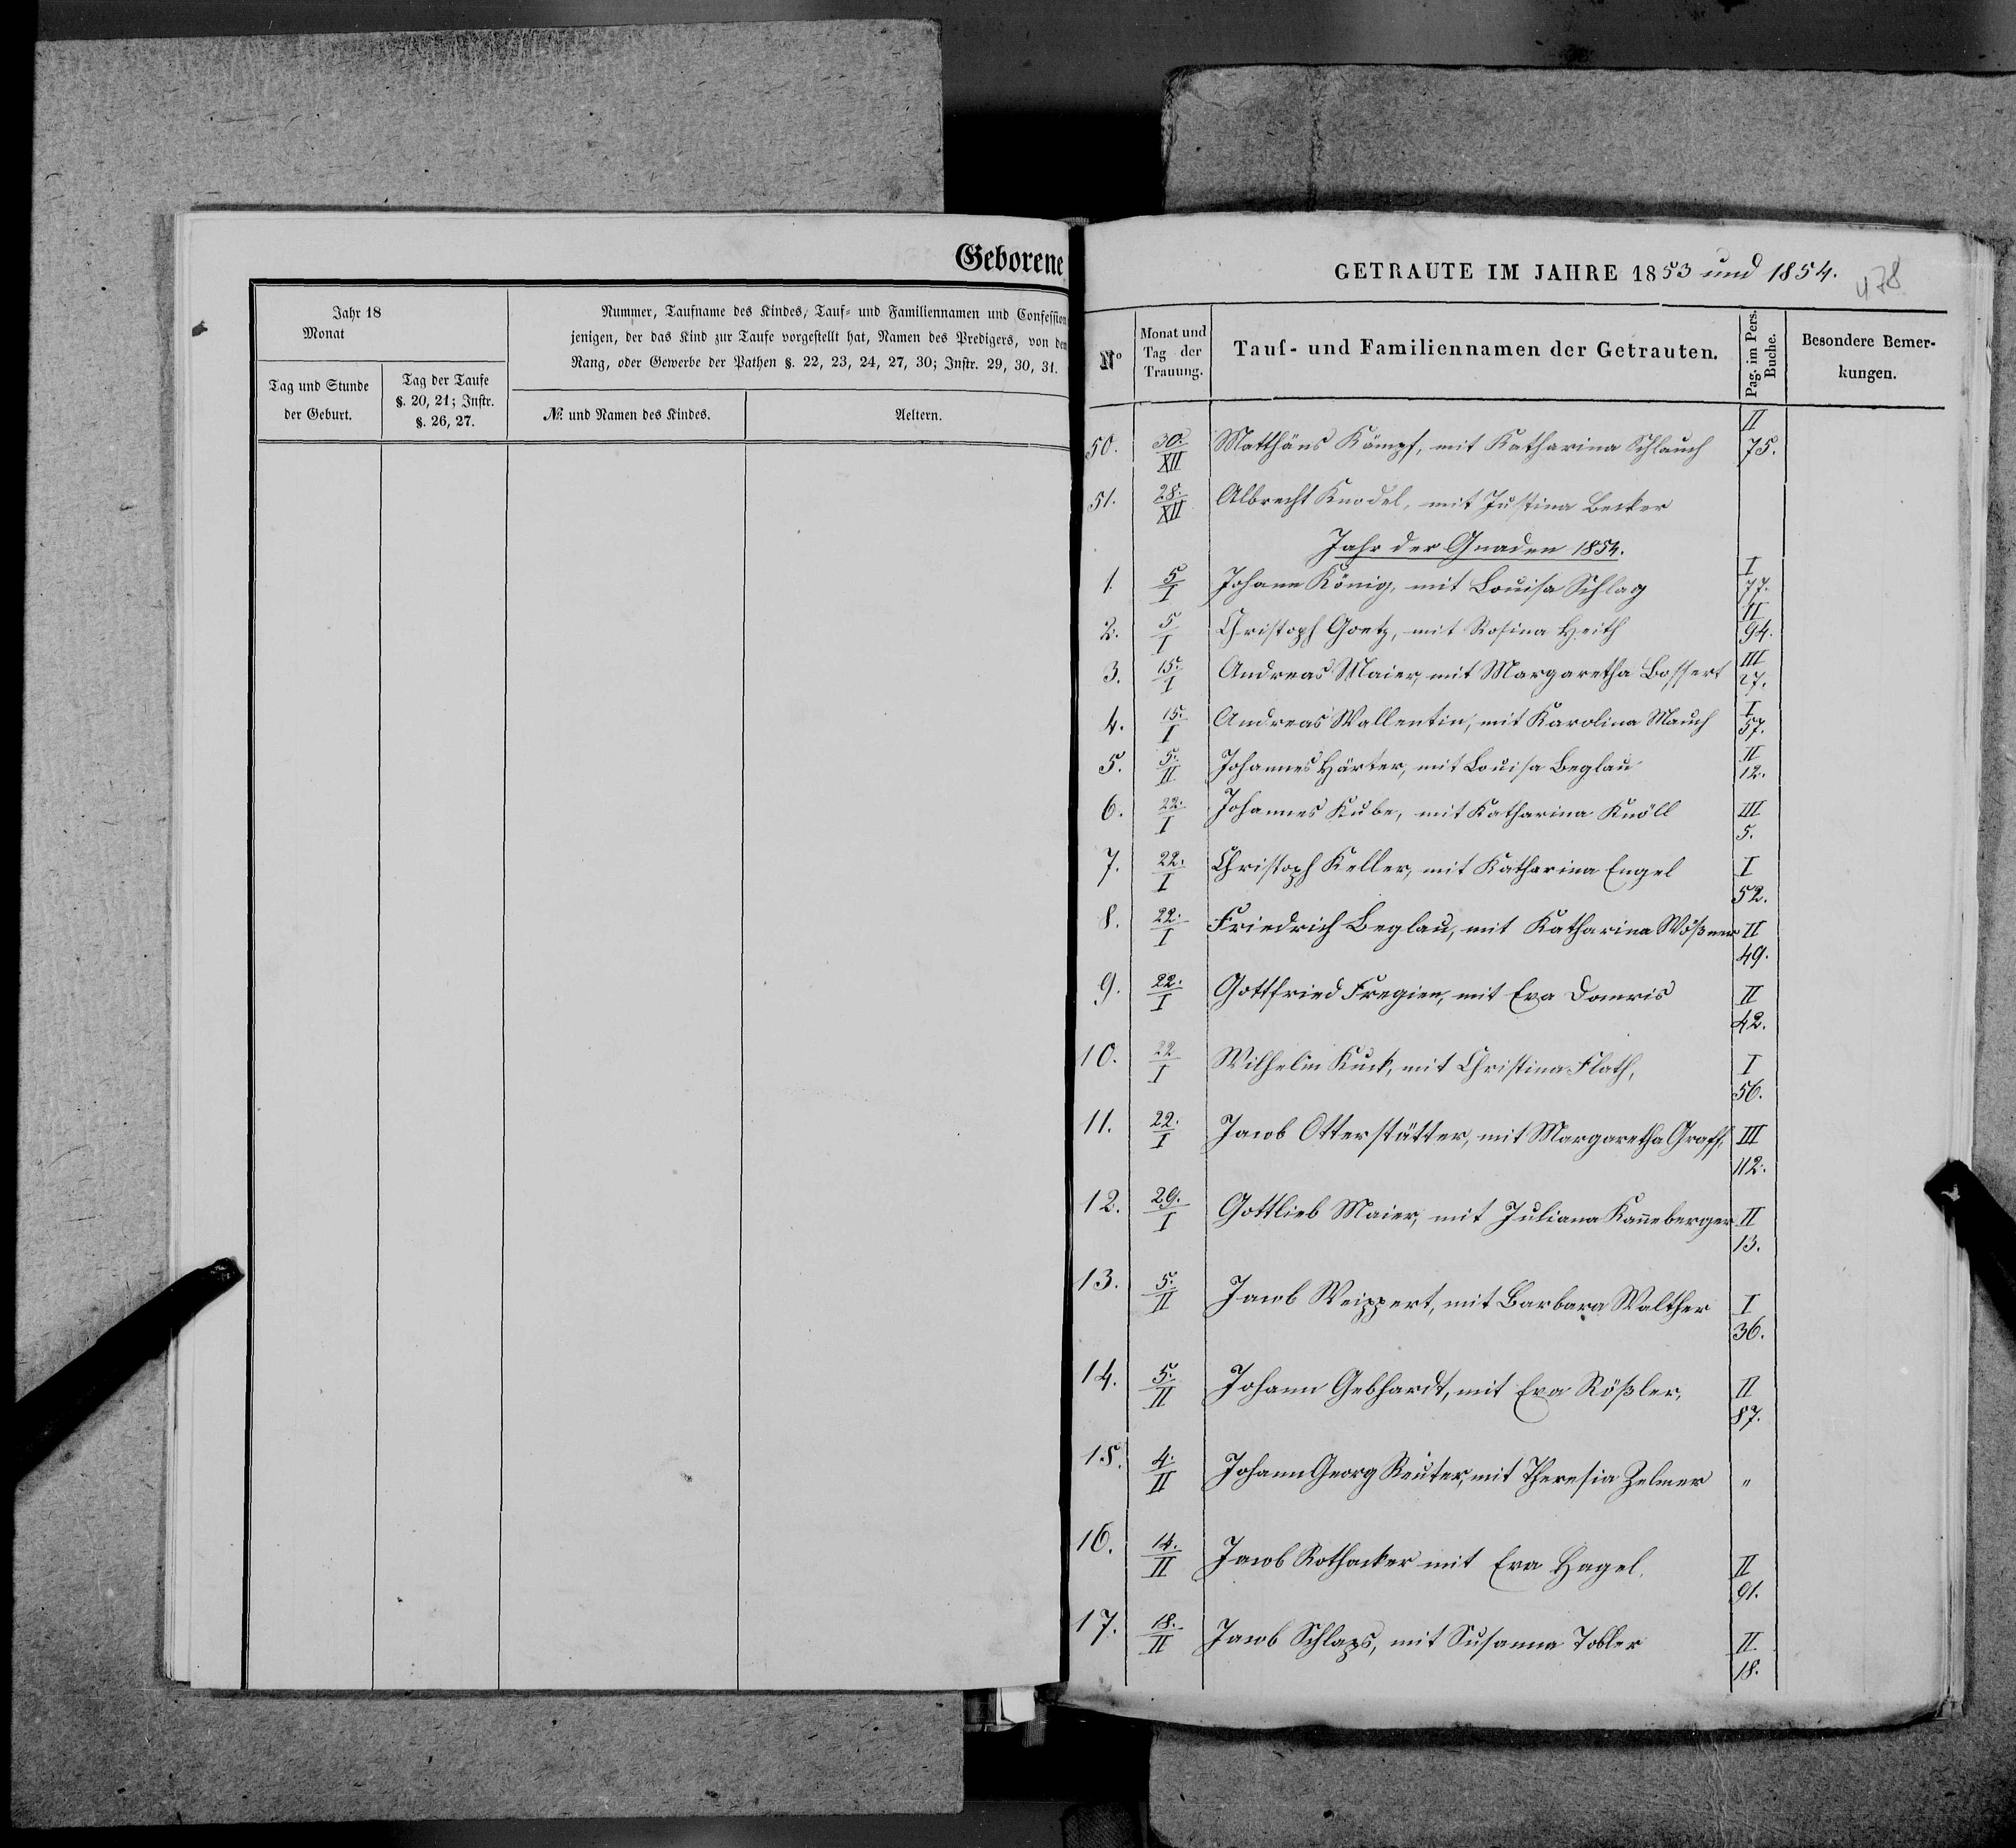 Geborene
Jahr 18
Monat
Tag und Stunde
der Geburt.
Tag der Taufe
§. 20, 21; Instr.
§. 26, 27.
Nummer, Taufname des Kindes, Tauf- und Familiennamen und Confession
jenigen, der das Kind zur Taufe vorgestellt hat, Namen des Predigers, von dem
Rang, oder Gewerbe der Pathen §. 22, 23, 24, 27, 30; Instr. 29, 30, 31.
№ und Namen des Kindes.
Aeltern.
GETRAUTE IM JAHRE 1853 und 1854.
478
N° Monat und Tag der Trauung. Tauf- und Familiennamen der Getrauten. Pag. im Pers. Buche. Besondere Bemerkungen.
50. 30./XII Matthäus Kämpf, mit Katharina Schlauch II 75.
51. 28./XII Albrecht Knodel, mit Justina Becker
Jahr der Gnaden 1854.
1. 5/I Johann König, mit Louisa Schlag I 77.
2. 5/I Christoph Goetz, mit Rosina Heith II 94.
3. 15./I Andreas Maier, mit Margaretha Bossert III 27.
4. 15./I Andreas Wallentin, mit Karolina Mauch I 57.
5. 5./II Johannes Härter, mit Louisa Beglau II 12.
6. 22./I Johannes Kube, mit Katharina Knöll III 5.
7. 22./I Christoph Keller, mit Katharina Engel I 52.
8. 22./I Friedrich Beglau, mit Katharina Wößner II 49.
9. 22./I Gottfried Fregien, mit Eva Domris II 42.
10. 22/I Wilhelm Kuck, mit Christina Flath, I 56.
11. 22./I Jacob Otterstätter, mit Margaretha Graff, III 112.
12. 29./I Gottlieb Maier, mit Juliana Kan̅eberger II 13.
13. 5./II Jacob Weippert, mit Barbara Walther I 36.
14. 5./II Johann Gebhardt, mit Eva Rößler, II 87.
15. 4./II Johann Georg Reuter, mit Theresia Zelmer "
16. 14./II Jacob Rothacker mit Eva Hagel. II 91.
17. 18./II Jacob Schlaps, mit Susanna Tobler II 18.